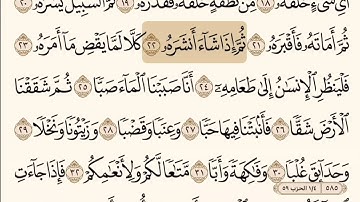 أَيِّ شَيْءٍ خَلَقَهُۥ ١٨ مِن نُّطْفَةٍ خَلَقَهُۥ فَقَدَّرَهُۥ ١٩ ثُمَّ ٱلسَّبِيلَ يَسَّرَهُۥ ٢٠
ثُمَّ أَمَاتَهُۥ فَأَقْبَرَهُۥ ٢١ ثُمَّ إِذَا شَآءَ أَنشَرَهُۥ ٢٢ كَلَّا لَمَّا يَقْضِ مَآ أَمَرَهُۥ ٢٣
فَلْيَنظُرِ ٱلْإِنسَٰنُ إِلَىٰ طَعَامِهِۦٓ ٢٤ أَنَّا صَبَبْنَا ٱلْمَآءَ صَبًّا ٢٥ ثُمَّ شَقَقْنَا
ٱلْأَرْضَ شَقًّا ٢٦ فَأَنۢبَتْنَا فِيهَا حَبًّا ٢٧ وَعِنَبًا وَقَضْبًا ٢٨ وَزَيْتُونًا وَنَخْلًا ٢٩
وَحَدَآئِقَ غُلْبًا ٣٠ وَفَٰكِهَةً وَأَبًّا ٣١ مَّتَٰعًا لَّكُمْ وَلِأَنْعَٰمِكُمْ ٣٢ فَإِذَا جَآءَتِ
٥٨٥ ١/٤ الحزب ٥٩